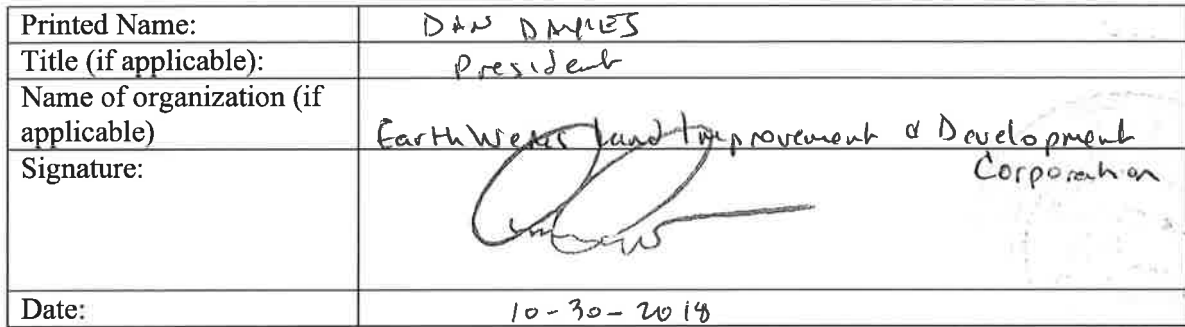 Printed Name: DAN DAMES
Title (if applicable): President
Name of organization (if
applicable) EarthWerks Land Improvement & Development
Signature: Corporation
Date: 10-30-2018